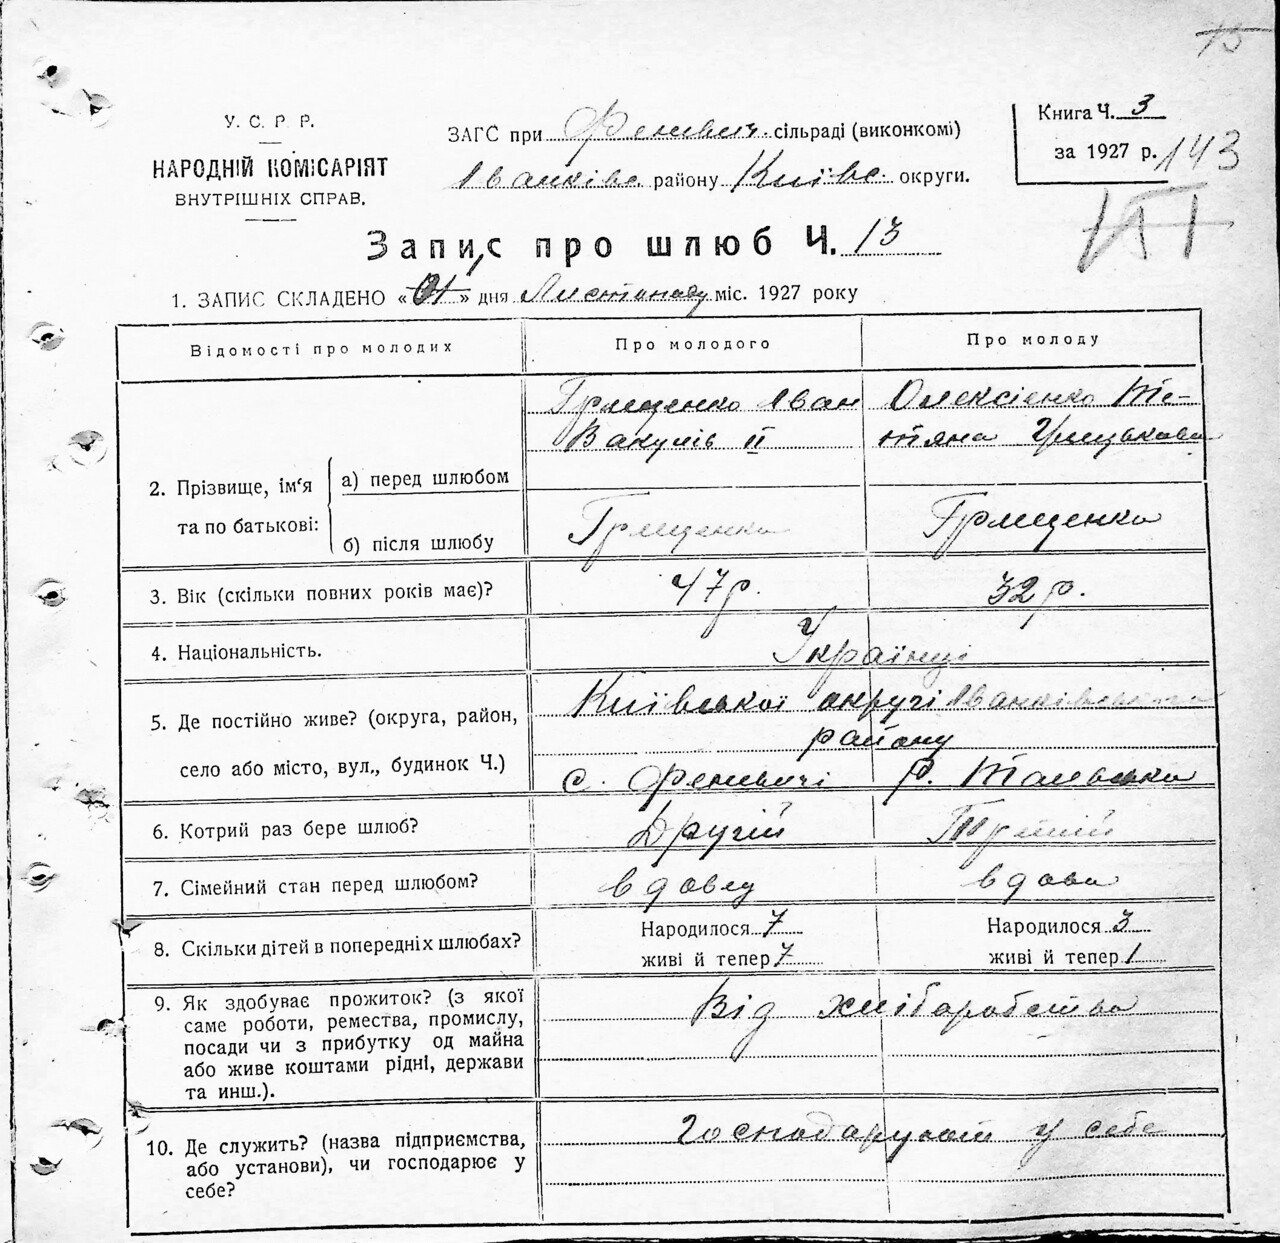 15
У. С. Р. Р.
НАРОДНІЙ КОМІСАРІЯТ
ВНУТРІШНІХ СПРАВ.
ЗАГС при Феневич. сільраді (виконкомі)
Іванківс. району Київс. округи.
Книга Ч. 3
за 1927 р.
143
Запис про шлюб Ч. 13
1. ЗАПИС СКЛАДЕНО « » дня Листопаду міс. 1927 року
Відомості про молодих
Про молодого
Про молоду
2. Прізвище, ім'я та по батькові:
а) перед шлюбом
Грищенко Іван
Вакулів II
Олексієнко Те-
тяна Грицькова
б) після шлюбу
Грищенко
Грищенко
3. Вік (скільки повних років має)?
47 р.
32 р.
4. Національність.
Українці
5. Де постійно живе? (округа, район,
село або місто, вул., будинок Ч.)
Київської округі Іванківського
району
с. Феневичі р.
6. Котрий раз бере шлюб?
Другій
Третій
7. Сімейний стан перед шлюбом?
вдовец
вдова
8. Скільки дітей в попередніх шлюбах?
Народилося 7
живі й тепер 7
Народилося 3
живі й тепер 1
9. Як здобуває прожиток? (з якої
саме роботи, ремества, промислу,
посади чи з прибутку од майна
або живе коштами рідні, держави
та инш.).
Від хліборобства
10. Де служить? (назва підприємства,
або установи), чи господарює у
себе?
Господарують у себе